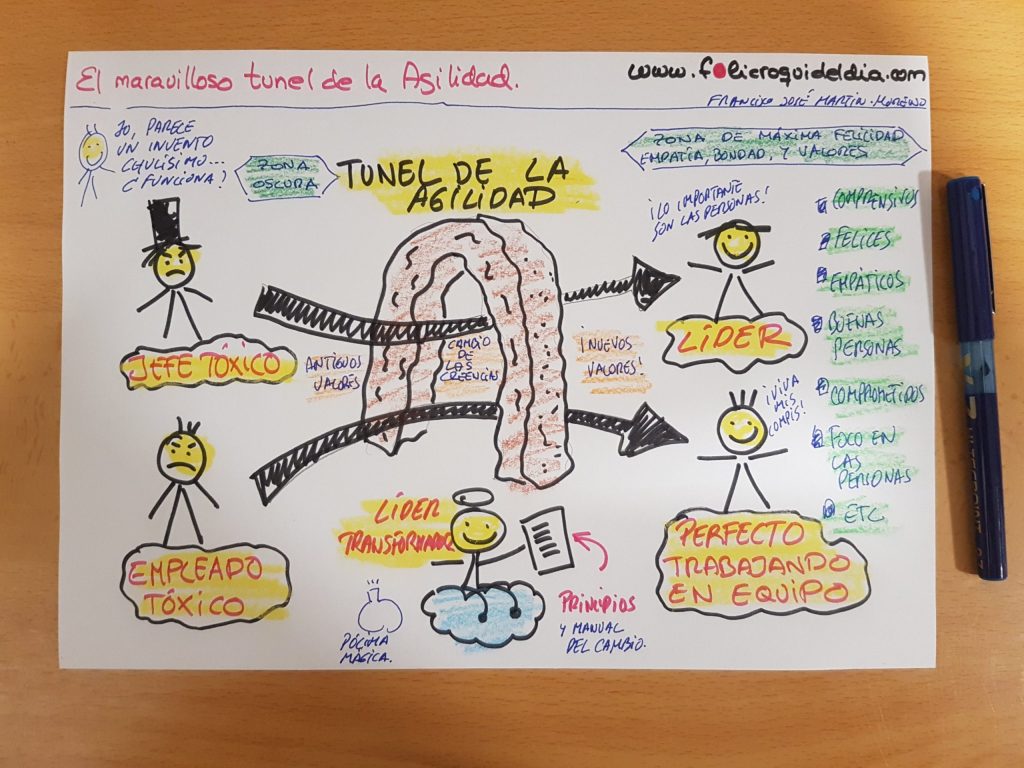 El maravilloso tunel de la Agilidad.
www.felicroquideldia.com
FRANCISCO JOSÉ MARTIN-MORENO
JO, PARECE
UN INVENTO
CHULÍSIMO...
¿FUNCIONA?
ZONA
OSCURA
TUNEL DE LA
AGILIDAD
ZONA DE MÁXIMA FELICIDAD
EMPATÍA, BONDAD, Y VALORES
¡LO IMPORTANTE
SON LAS PERSONAS!
JEFE TÓXICO
ANTIGUOS
VALORES
CAMBIO
DE
LAS
CREENCIAS
¡NUEVOS
VALORES!
LÍDER
COMPRENSIVOS
FELICES
EMPÁTICOS
BUENAS
PERSONAS
COMPROMETIDOS
FOCO EN
LAS
PERSONAS
ETC
¡VIVA
MIS
COMPIS!
EMPLEADO
TÓXICO
LÍDER
TRANSFORMADOR
PÓCIMA
MÁGICA.
PRINCIPIOS
Y MANUAL
DEL CAMBIO.
PERFECTO
TRABAJANDO
EN EQUIPO